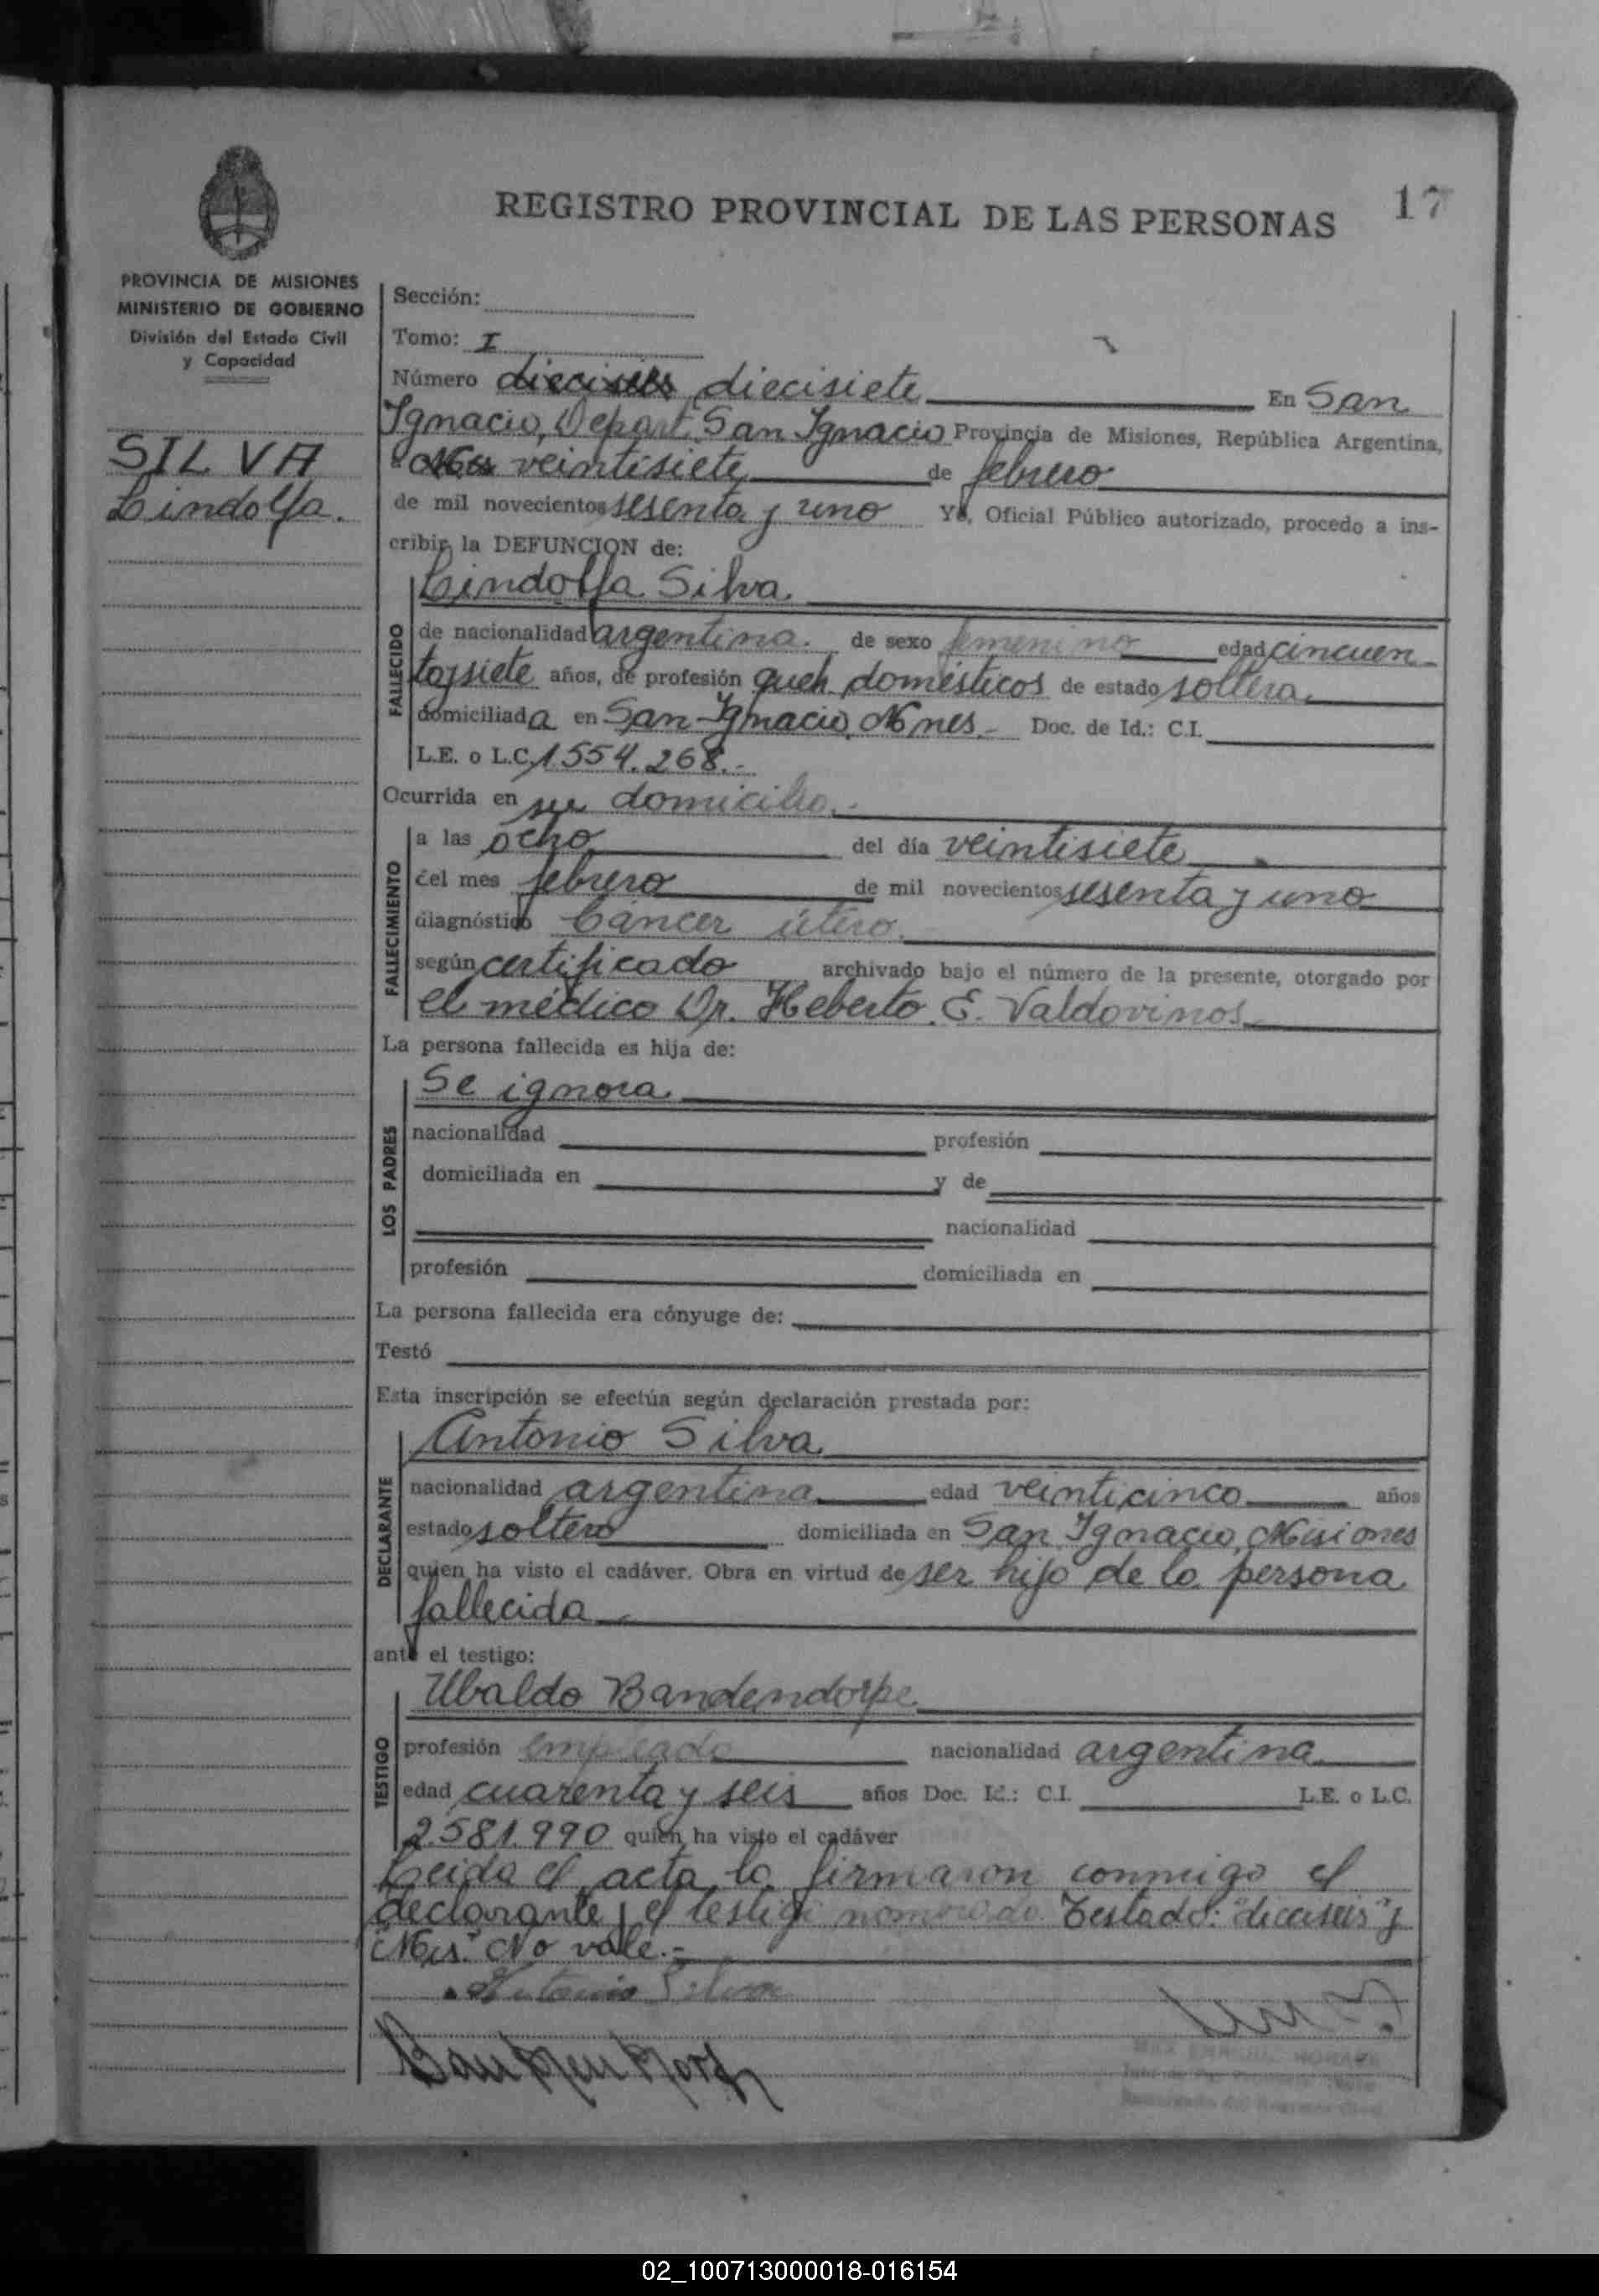 REGISTRO PROVINCIAL DE LAS PERSONAS
17
PROVINCIA DE MISIONES
MINISTERIO DE GOBIERNO
División del Estado Civil
y Capacidad
SILVA
Lindolfa.
Sección:
Tomo: I
Número dieciseis diecisiete En San
Ignacio, Depart. San Ignacio Provincia de Misiones, República Argentina,
a Mis veintisiete de febrero
de mil novecientos sesenta y uno Yo, Oficial Público autorizado, procedo a ins-
cribir la DEFUNCION de:
Lindolfa Silva.
FALLECIDO
de nacionalidad argentina. de sexo femenino edad cincuen
taysiete años, de profesión queh. domésticos de estado soltera
domiciliada en San Ignacio, Mnes.- Doc. de Id.: C.I.
L.E. o L.C. 1.554.268.-
Ocurrida en su domicilio.-
FALLECIMIENTO
a las ocho del día veintisiete
del mes febrero de mil novecientos sesenta y uno
diagnóstico Cáncer útero.
según certificado archivado bajo el número de la presente, otorgado por
el médico Dr. Heberto E. Valdovinos
La persona fallecida es hija de:
LOS PADRES
Se ignora
nacionalidad profesión
domiciliada en y de
nacionalidad
profesión domiciliada en
La persona fallecida era cónyuge de:
Testó
Esta inscripción se efectúa según declaración prestada por:
DECLARANTE
Antonio Silva
nacionalidad argentina edad veinticinco años
estado soltero domiciliada en San Ignacio, Misiones
quien ha visto el cadáver. Obra en virtud de ser hijo de la persona
fallecida
ante el testigo:
TESTIGO
Ubaldo Bandendorpe
profesión empleado nacionalidad argentina
edad cuarenta y seis años Doc. Id.: C.I. L.E. o L.C.
2.581.990 quien ha visto el cadáver
Leida el acta, la firmaron conmigo el
declarante y el testigo nombrado. Testado: "dieciseis" y
"Mis." No vale.-
Antonio Silva
02_100713000018-016154